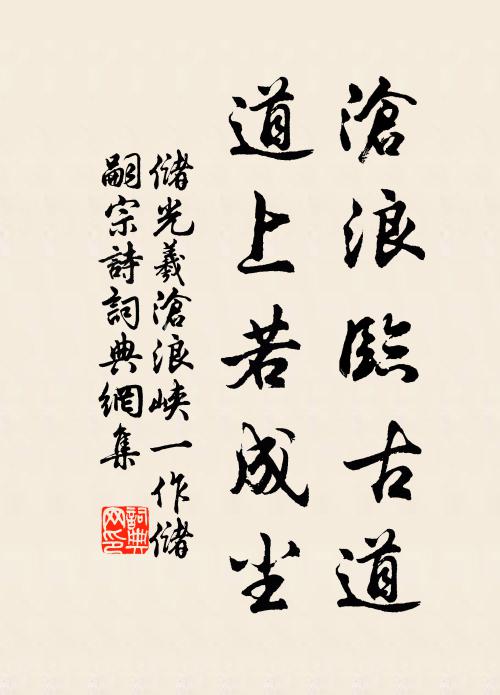 滄浪臨古道
道上若成尘
儲光羲滄浪峽一作儲
嗣宗詩詞典網集
詞典
网印